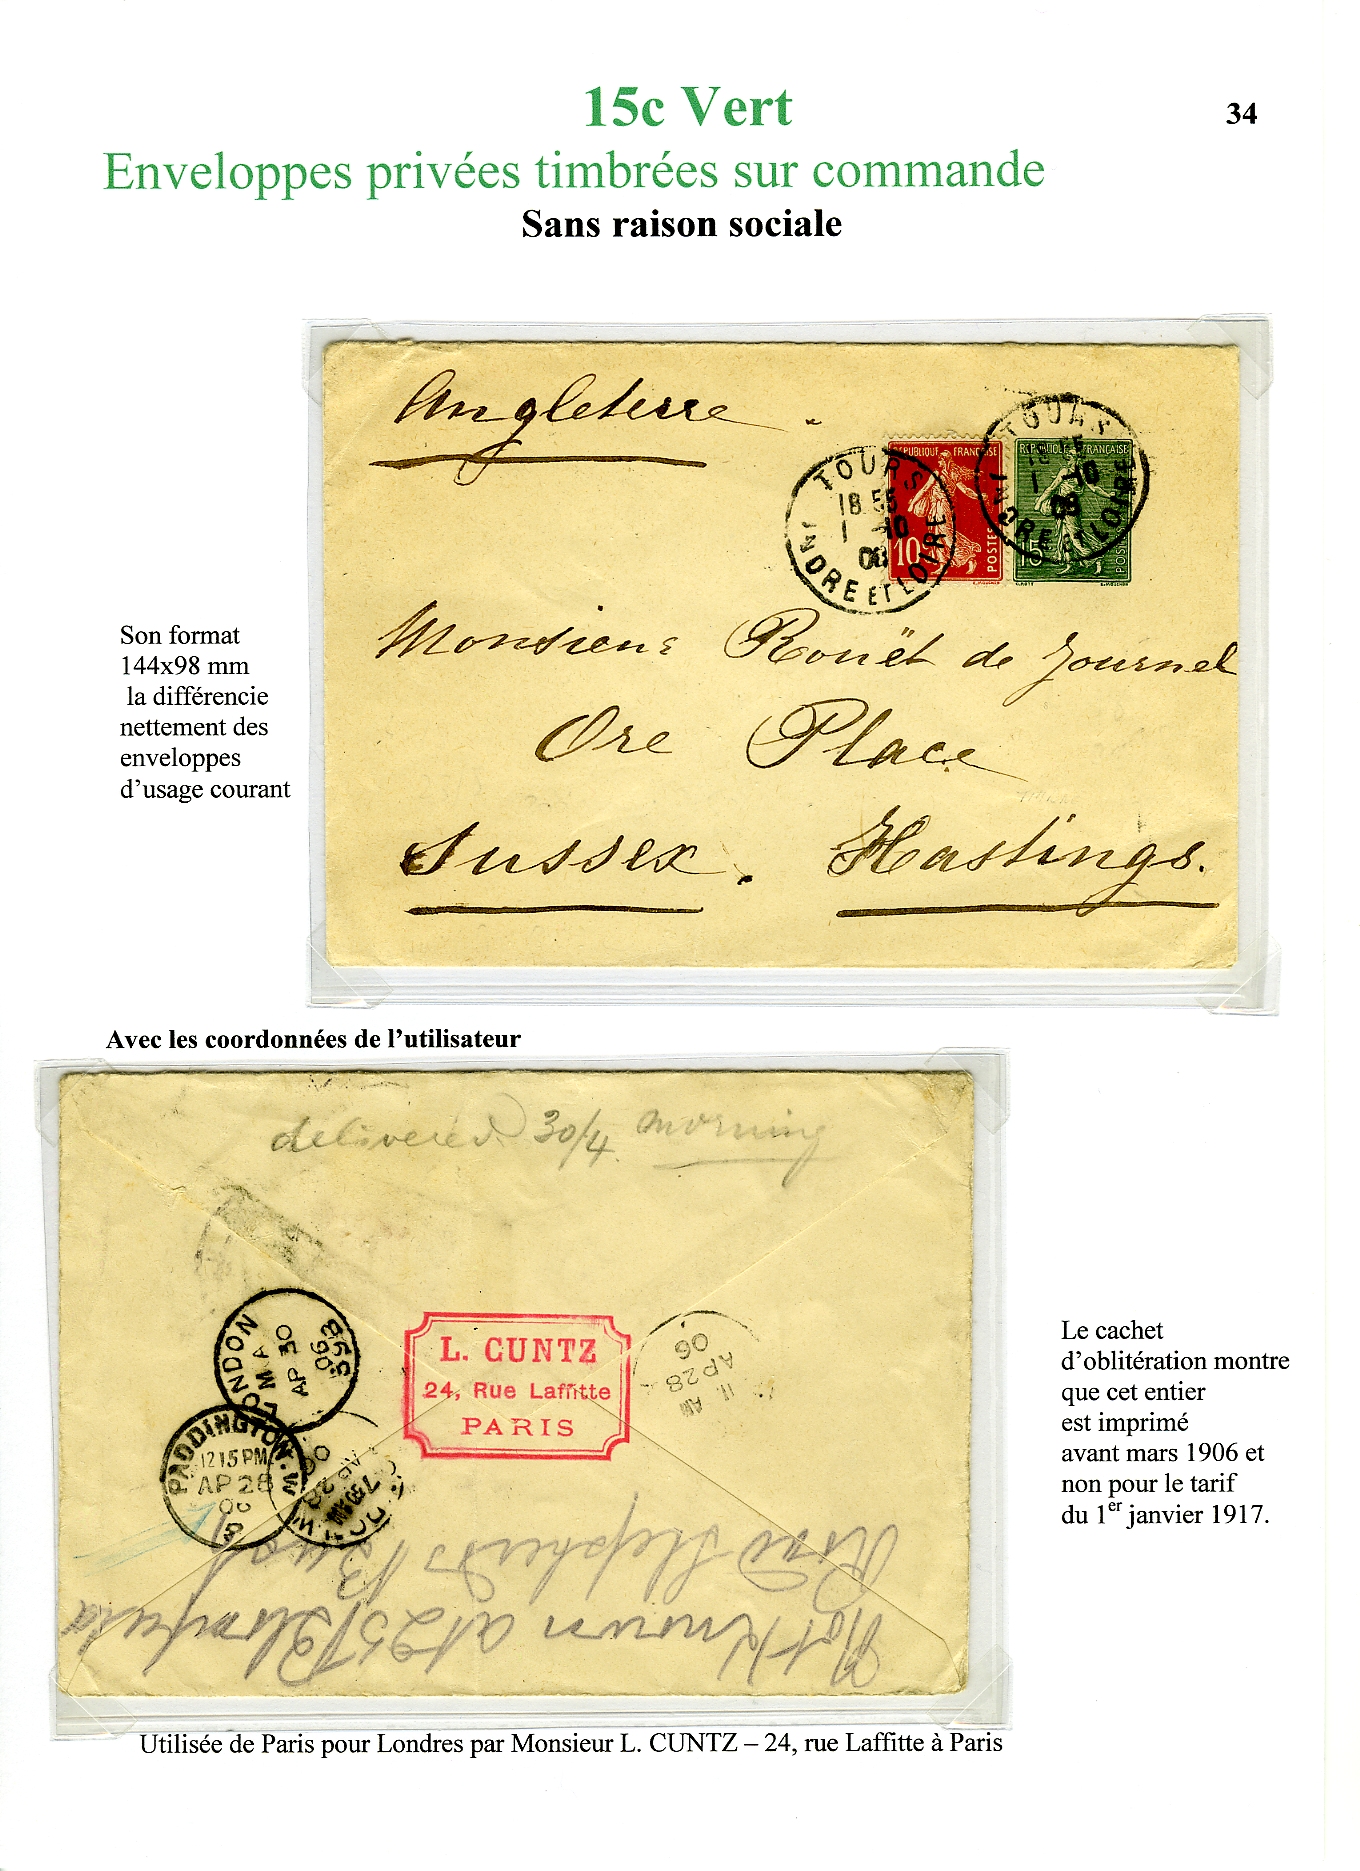 15c Vert
34
Enveloppes privées timbrées sur commande
Sans raison sociale
Angleterre
REPUBLIQUE FRANÇAISE
10
POSTES
REPUBLIQUE FRANÇAISE
15
POSTES
TOURS
18.55
1 -10
INDRE ET LOIRE
TOURS
18.55
1 -10
INDRE ET LOIRE
Monsieur Rouët de Journel
Ore Place
Sussex. Hastings.
Son format
144x98 mm
la différencie
nettement des
enveloppes
d'usage courant
Avec les coordonnées de l'utilisateur
delivered 30/4 morning
LONDON
AP 30
06
L. CUNTZ
24, Rue Laffitte
PARIS
11 AM
AP 28
06
PADDINGTON. W
12 15 PM
AP 28
06
Not Known at 25 Blomfield
Le cachet
d'oblitération montre
que cet entier
est imprimé
avant mars 1906 et
non pour le tarif
du 1er janvier 1917.
Utilisée de Paris pour Londres par Monsieur L. CUNTZ – 24, rue Laffitte à Paris